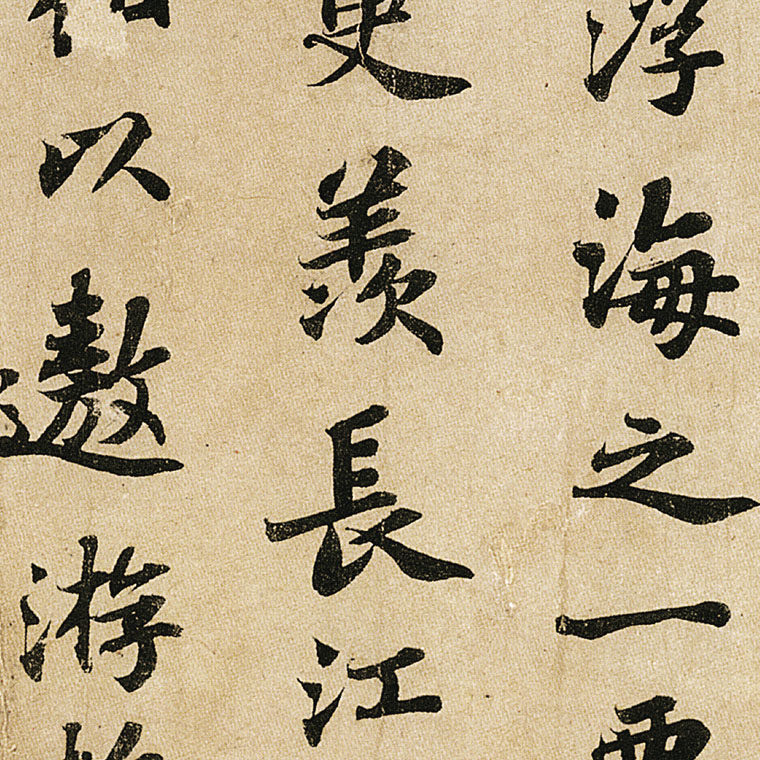 浮海之一
臾羡長江
以遨游